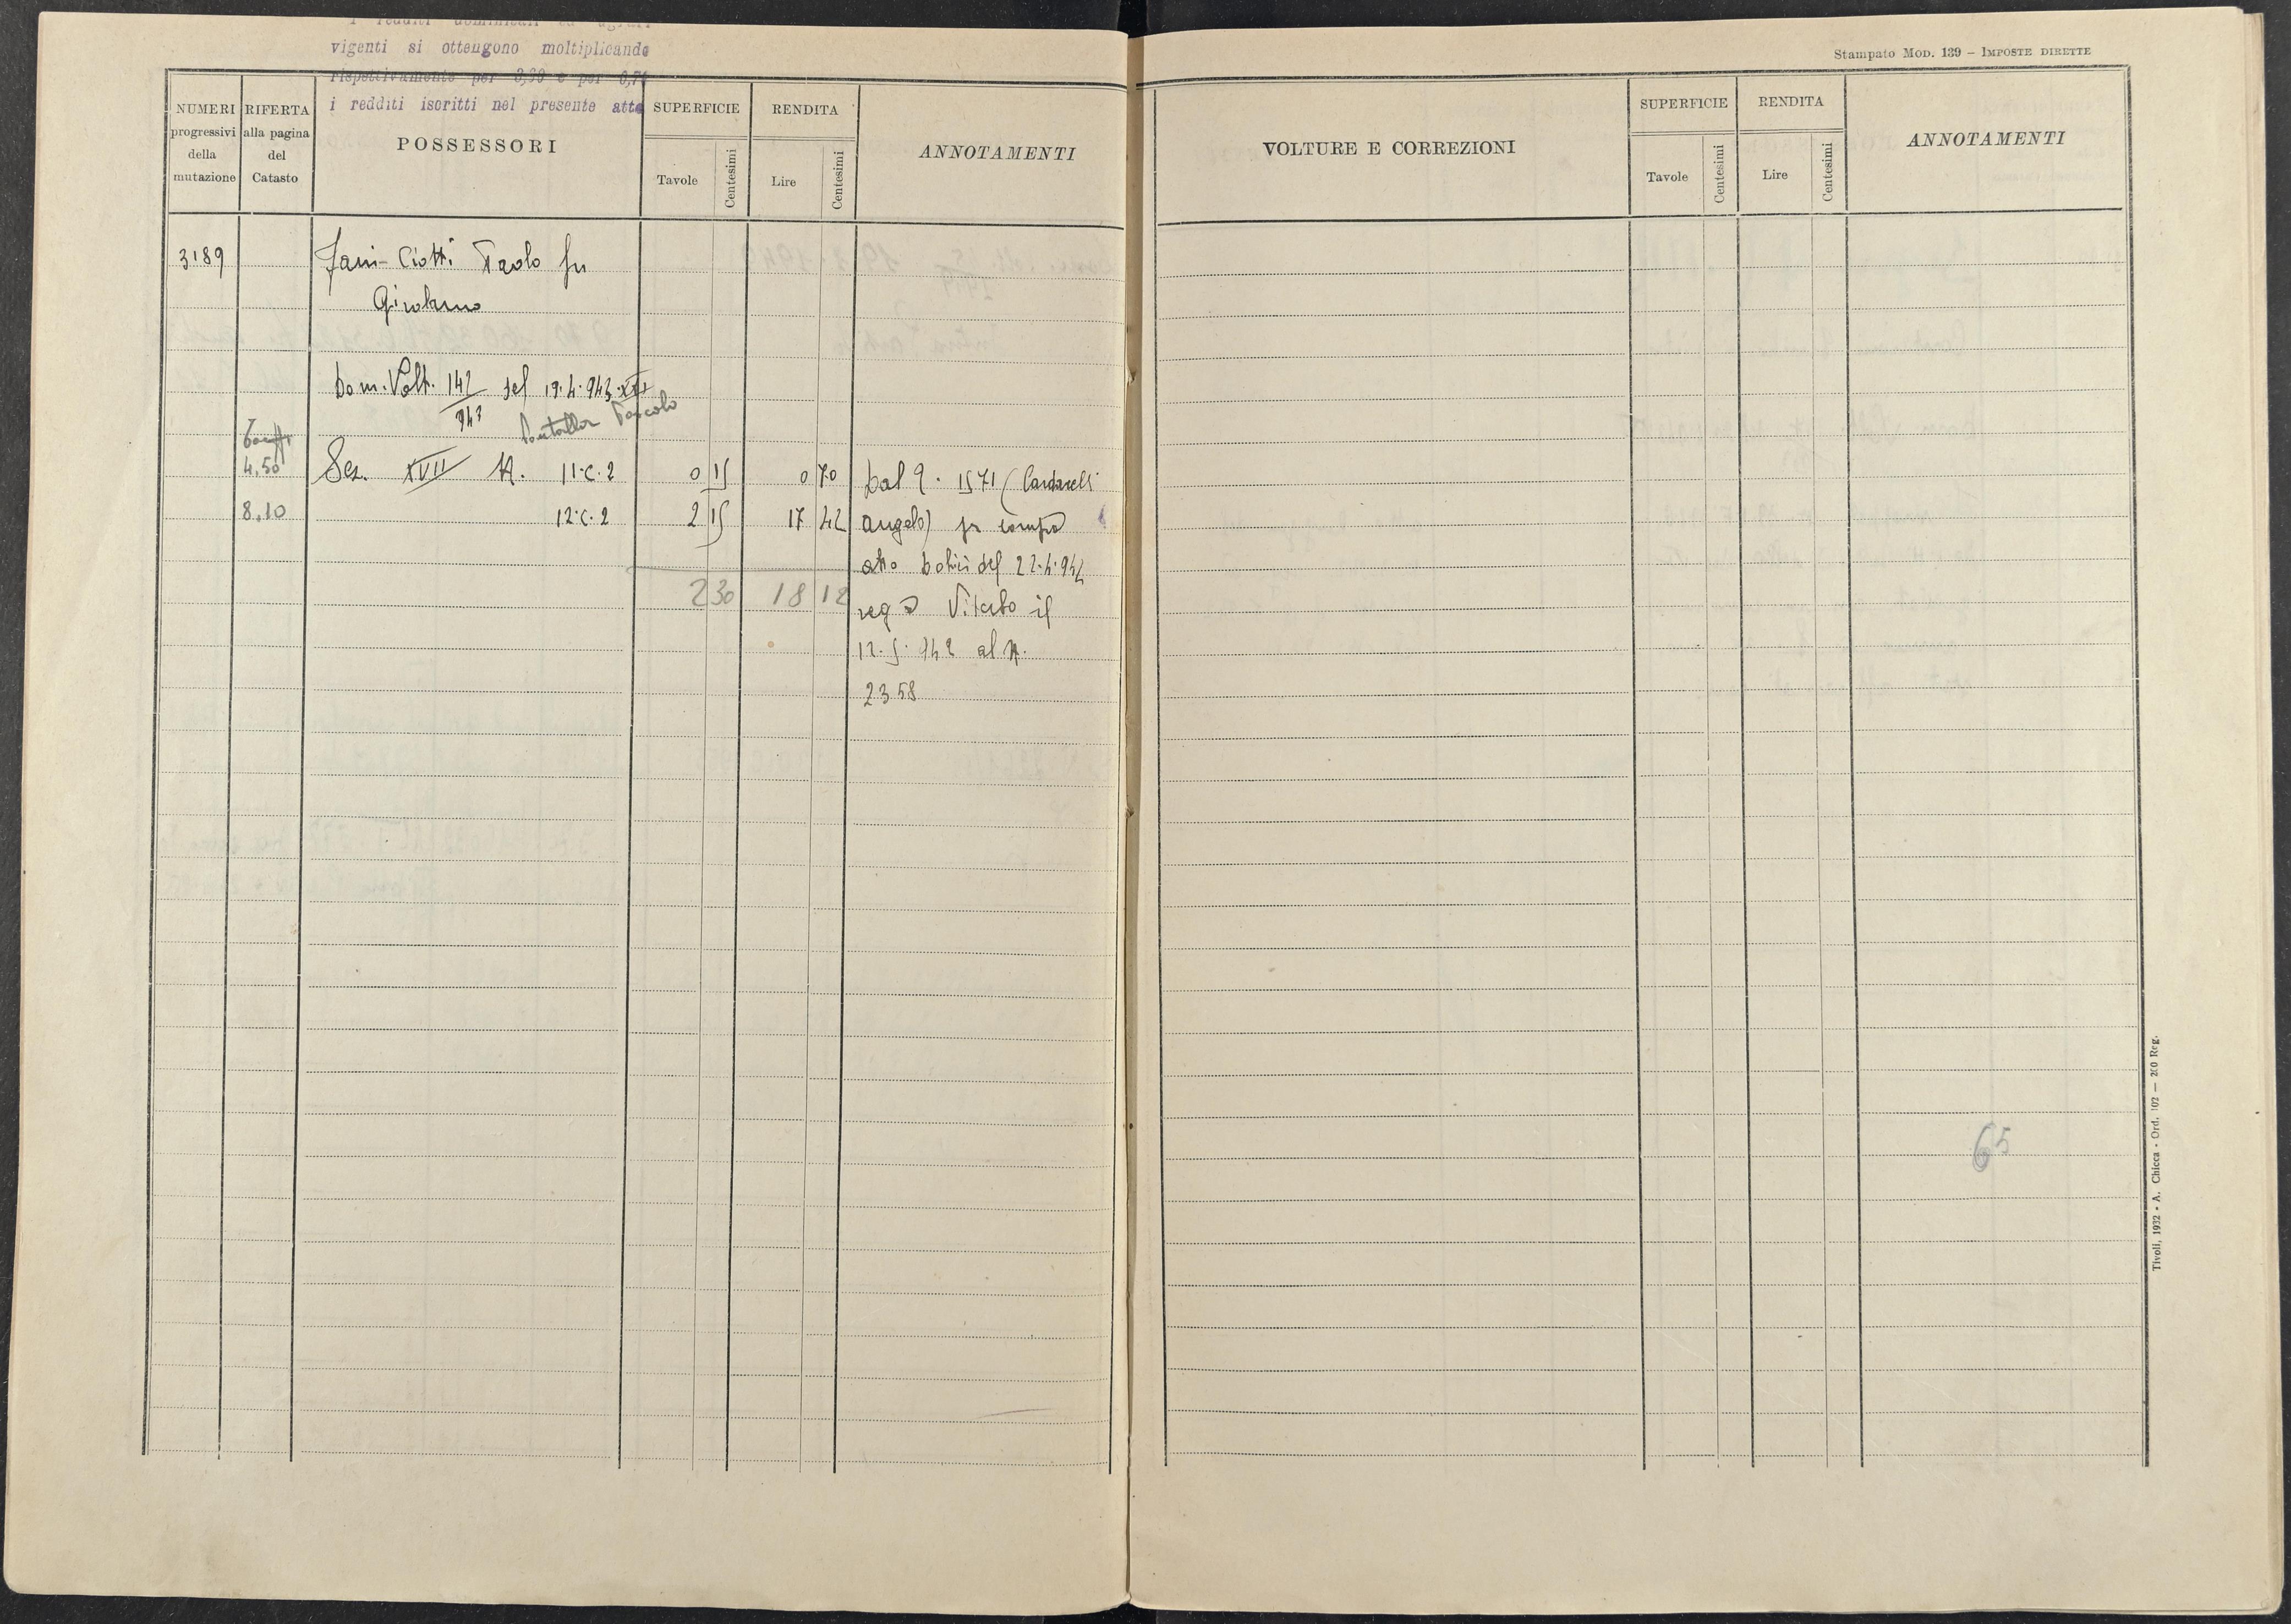 vigenti si ottengono moltiplicando
rispettivamente per 3,90 e per 0,7
i redditi iscritti nel presente atto
NUMERI
progressivi
della
mutazione
RIFERTA
alla pagina
del
Catasto
POSSESSORI
SUPERFICIE
Tavole
Centesimi
RENDITA
Lire
Centesimi
ANNOTAMENTI
3189
Ciotti Paolo fu
Girolamo
Dom. Volt. 142/943 del 19.4.943 XXI
Pascolo
4,50 Sez. XVII N. 11.C.2 0 15 0 70
8,10 12.C.2 2 15 17 42
2 30 18 12
Dal 9. 1571 (Cardarelli
Angelo) per compra
atto del 22.4.942
reg a Viterbo il
12.5.942 al N.
2358
Stampato MOD. 139 – IMPOSTE DIRETTE
VOLTURE E CORREZIONI
SUPERFICIE
Tavole
Centesimi
RENDITA
Lire
Centesimi
ANNOTAMENTI
65
Tivoli, 1932 - A. Chicca - Ord. 102 — 200 Reg.